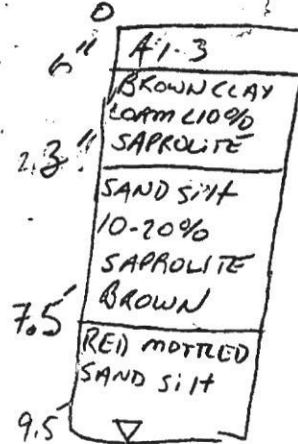 0
A1-3
6"
BROWN CLAY
LOAM <10%
SAPROLITE
2.3"
SAND SILT
10-20%
SAPROLITE
BROWN
7.5'
RED MOTTLED
SAND SILT
9.5'